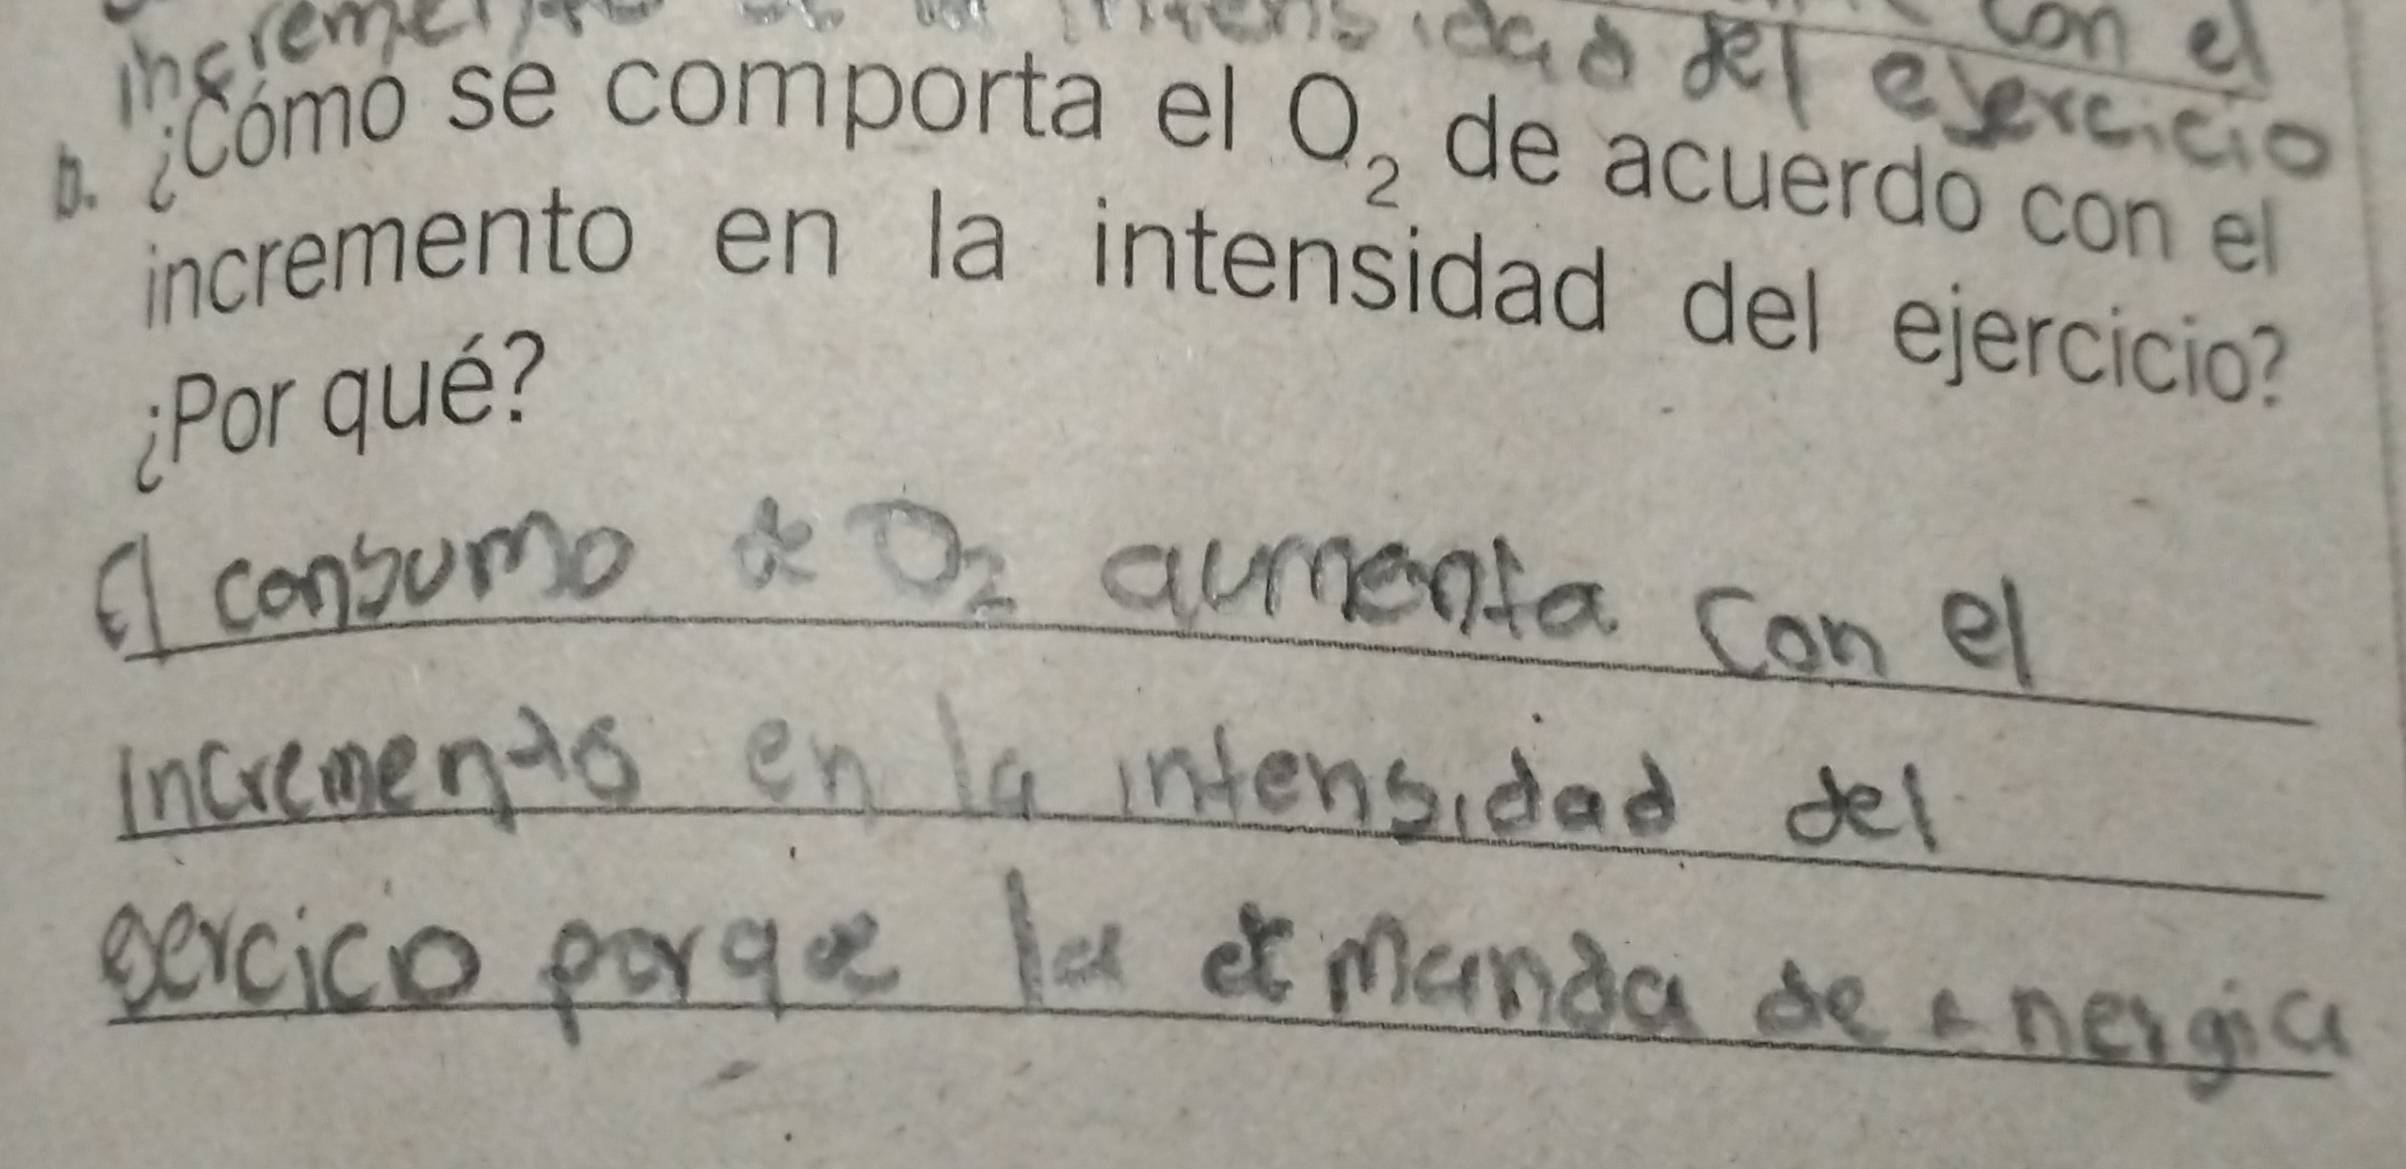 con el
incremento intensidad del ejercicio
b. ¿Cómo se comporta el O₂ de acuerdo con el
incremento en la intensidad del ejercicio?
¿Por qué?
El consumo de O₂ aumenta con el
incremento en la intensidad del
eercicio porque la demanda de energia